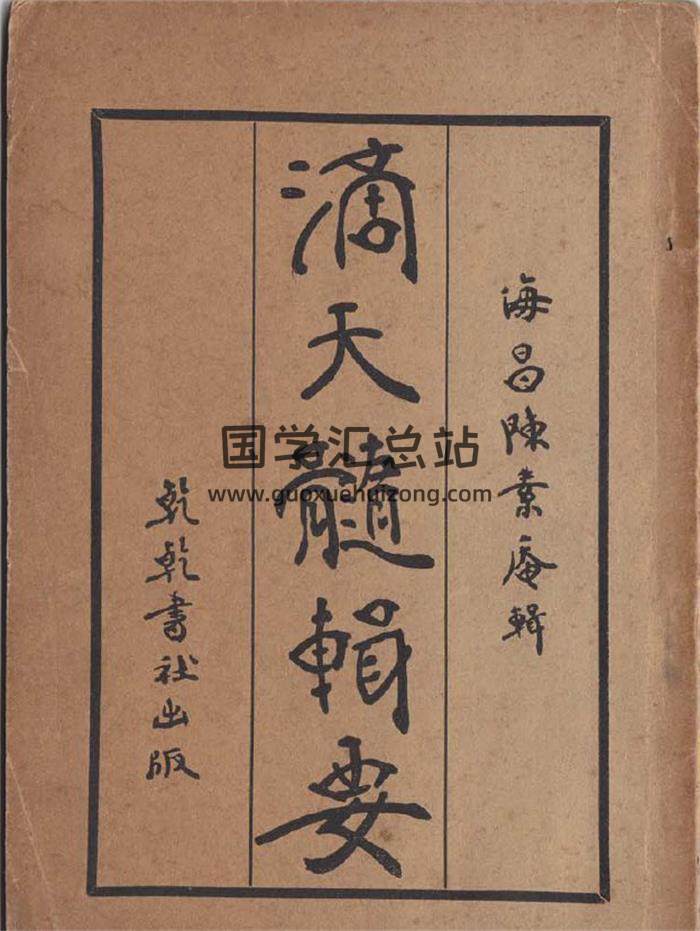 海昌陳素庵輯
滴天髓輯要
乾乾書社出版
国学汇总站
www.guoxuehuizong.com